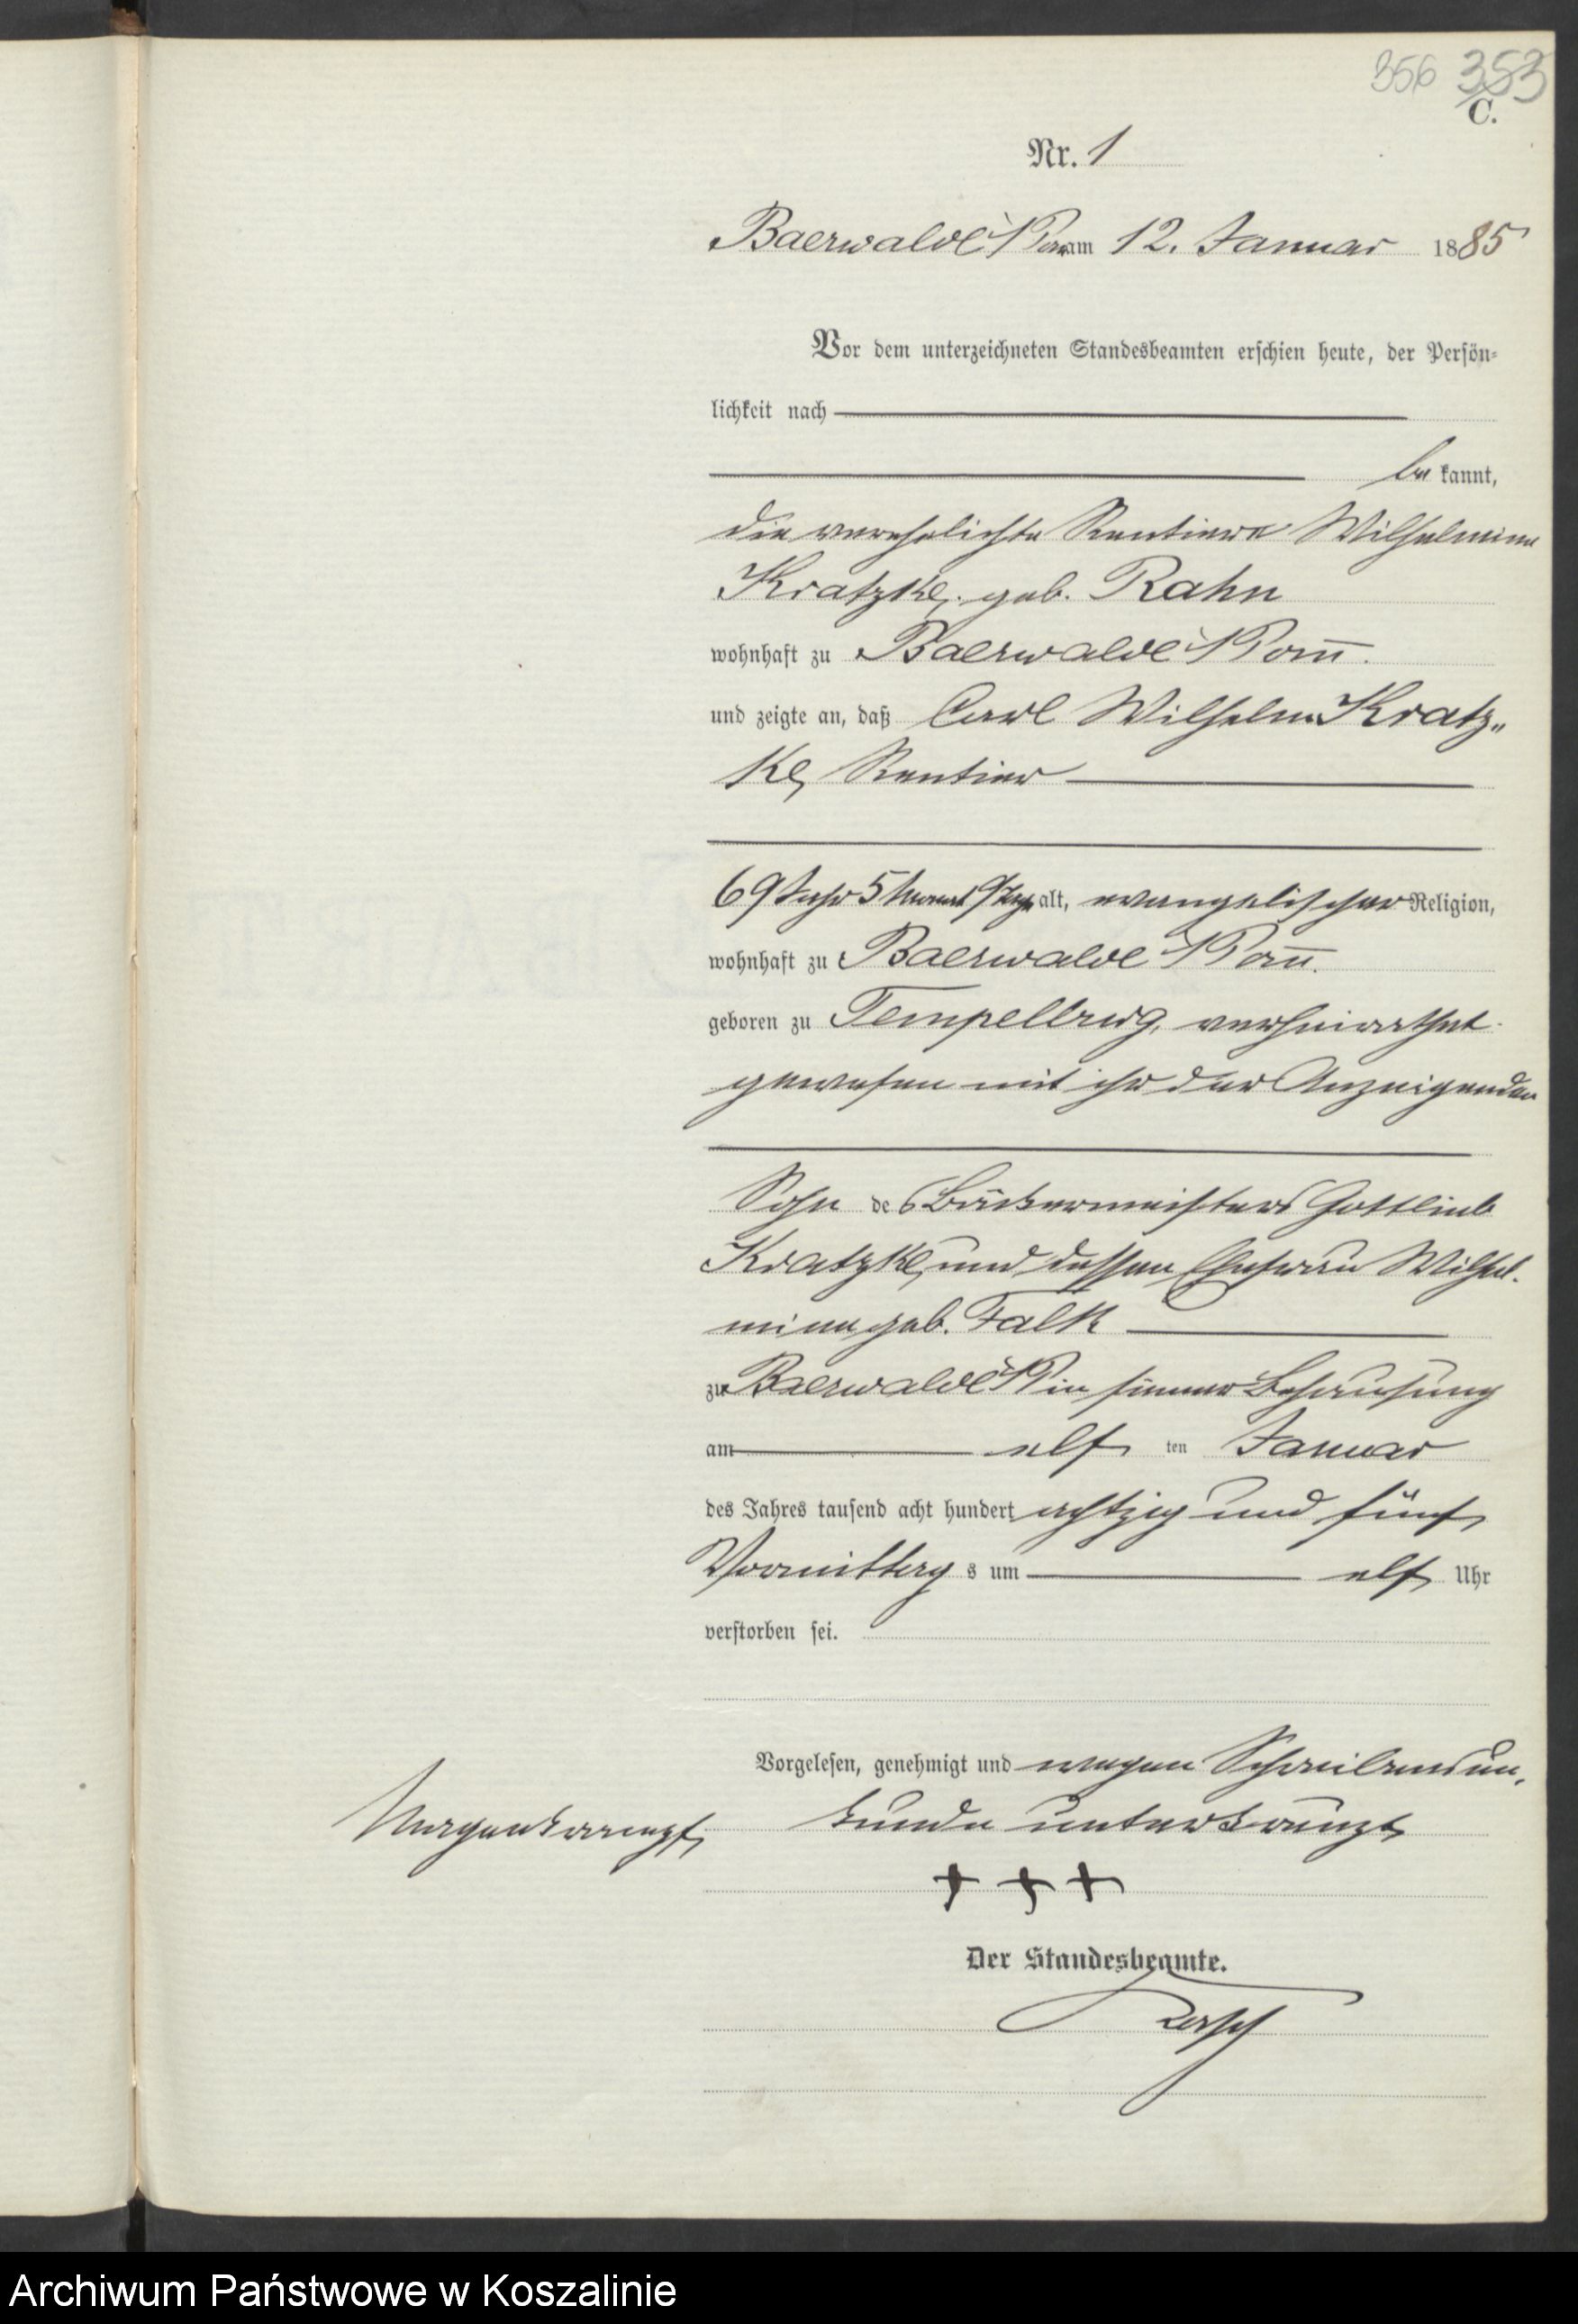 356 353
C.
Nr. 1
Baerwalde i/Pom am 12. Januar 1885
Vor dem unterzeichneten Standesbeamten erschien heute, der Persön-
lichkeit nach
be kannt,
die verehelichte Rentiere Wilhelmine
Kratzke, geb. Rahn
wohnhaft zu Baerwalde i/Pom̄.
und zeigte an, daß Carl Wilhelm Kratz„
ke, Rentier
69 Jahr 5 Monat 9 Tage alt, evangelischer Religion,
wohnhaft zu Baerwalde i/Pom̄.
geboren zu Tempelburg, verheirathet
gewesen mit ihr der Anzeigenden
Sohn des Bäckermeisters Gottlieb
Kratzke und dessen Ehefrau Wilhel-
mine geb. Falk
zu Baerwalde i/P in seiner Behausung
am elf ten Januar
des Jahres tausend acht hundert achtzig und fünf
Vormittag s um elf Uhr
verstorben sei.
Vorgelesen, genehmigt und wegen Schreibensun-
kunde unterkreuzt
+ + +
Der Standesbeamte.
Archiwum Państwowe w Koszalinie